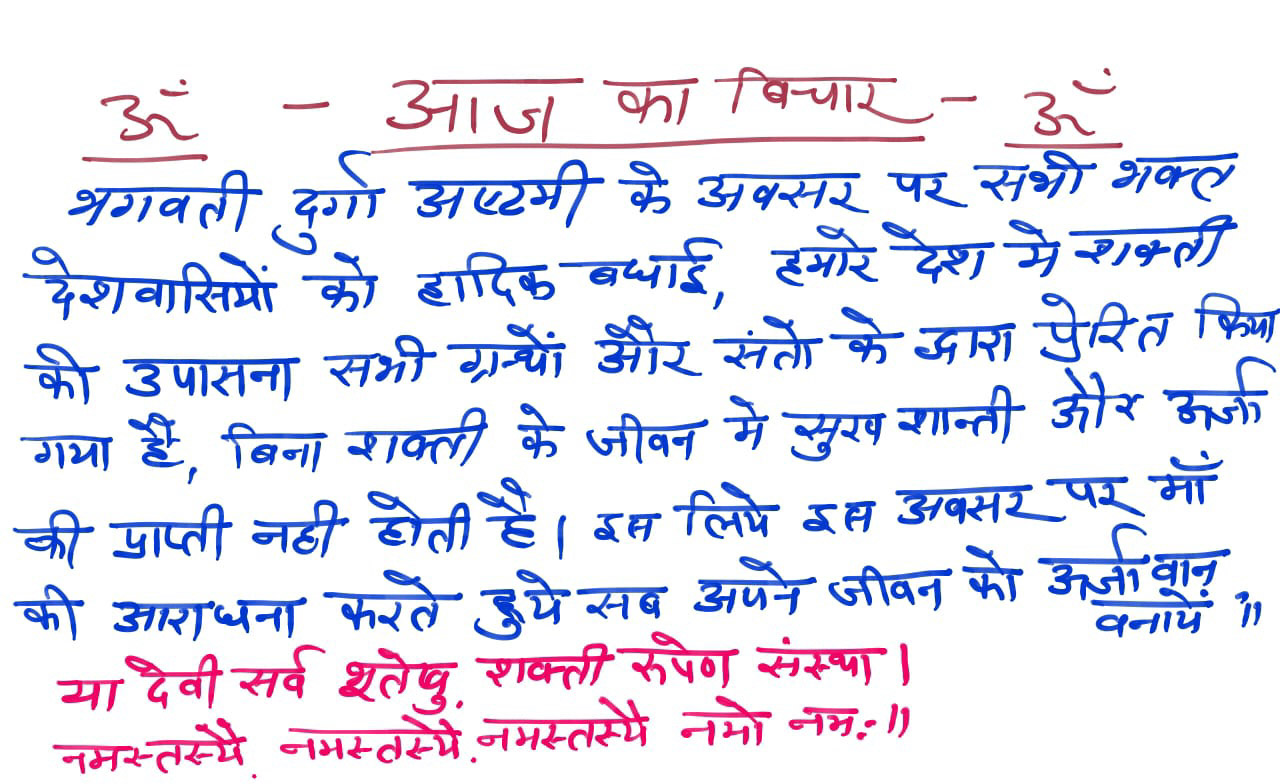 ॐ - आज का विचार - ॐ
भगवती दुर्गा अष्टमी के अवसर पर सभी भक्त
देशवासियों को हादिक बधाई, हमारे देश मे शक्ती
की उपासना सभी ग्रन्थों और संतो के द्वारा प्रेरित किया
गया है, बिना शक्ती के जीवन मे सुख शान्ती और ऊर्जा
की प्राप्ती नही होती है। इस लिये इस अवसर पर माँ
की आराधना करते हुये सब अपने जीवन को ऊर्जा वान
वनायें ॥
या देवी सर्व भूतेषु, शक्ती रुपेण संस्था।
नमस्तस्यै, नमस्तस्यै, नमस्तस्यै नमो नमः॥